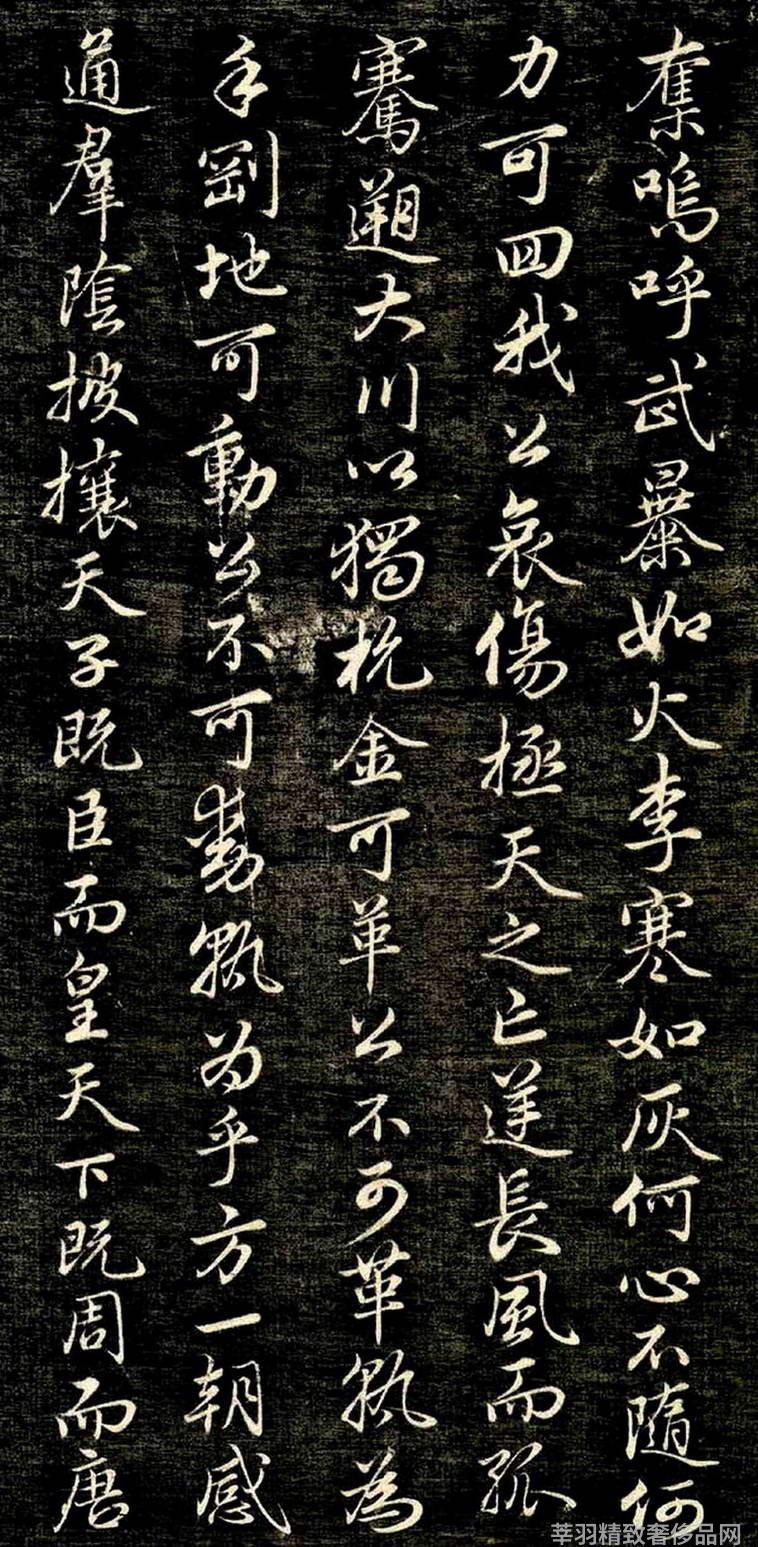 奪嗚呼武暴如火李寒如灰何心不隨何
力可囬我公哀傷拯天之亡逆長風而孤
騫遡大川以獨杭金可革公不可革孰為
乎剛地可動公不可動孰為乎方一朝感
通羣陰披攘天子既臣而皇天下既周而唐
莘羽精致奢侈品网